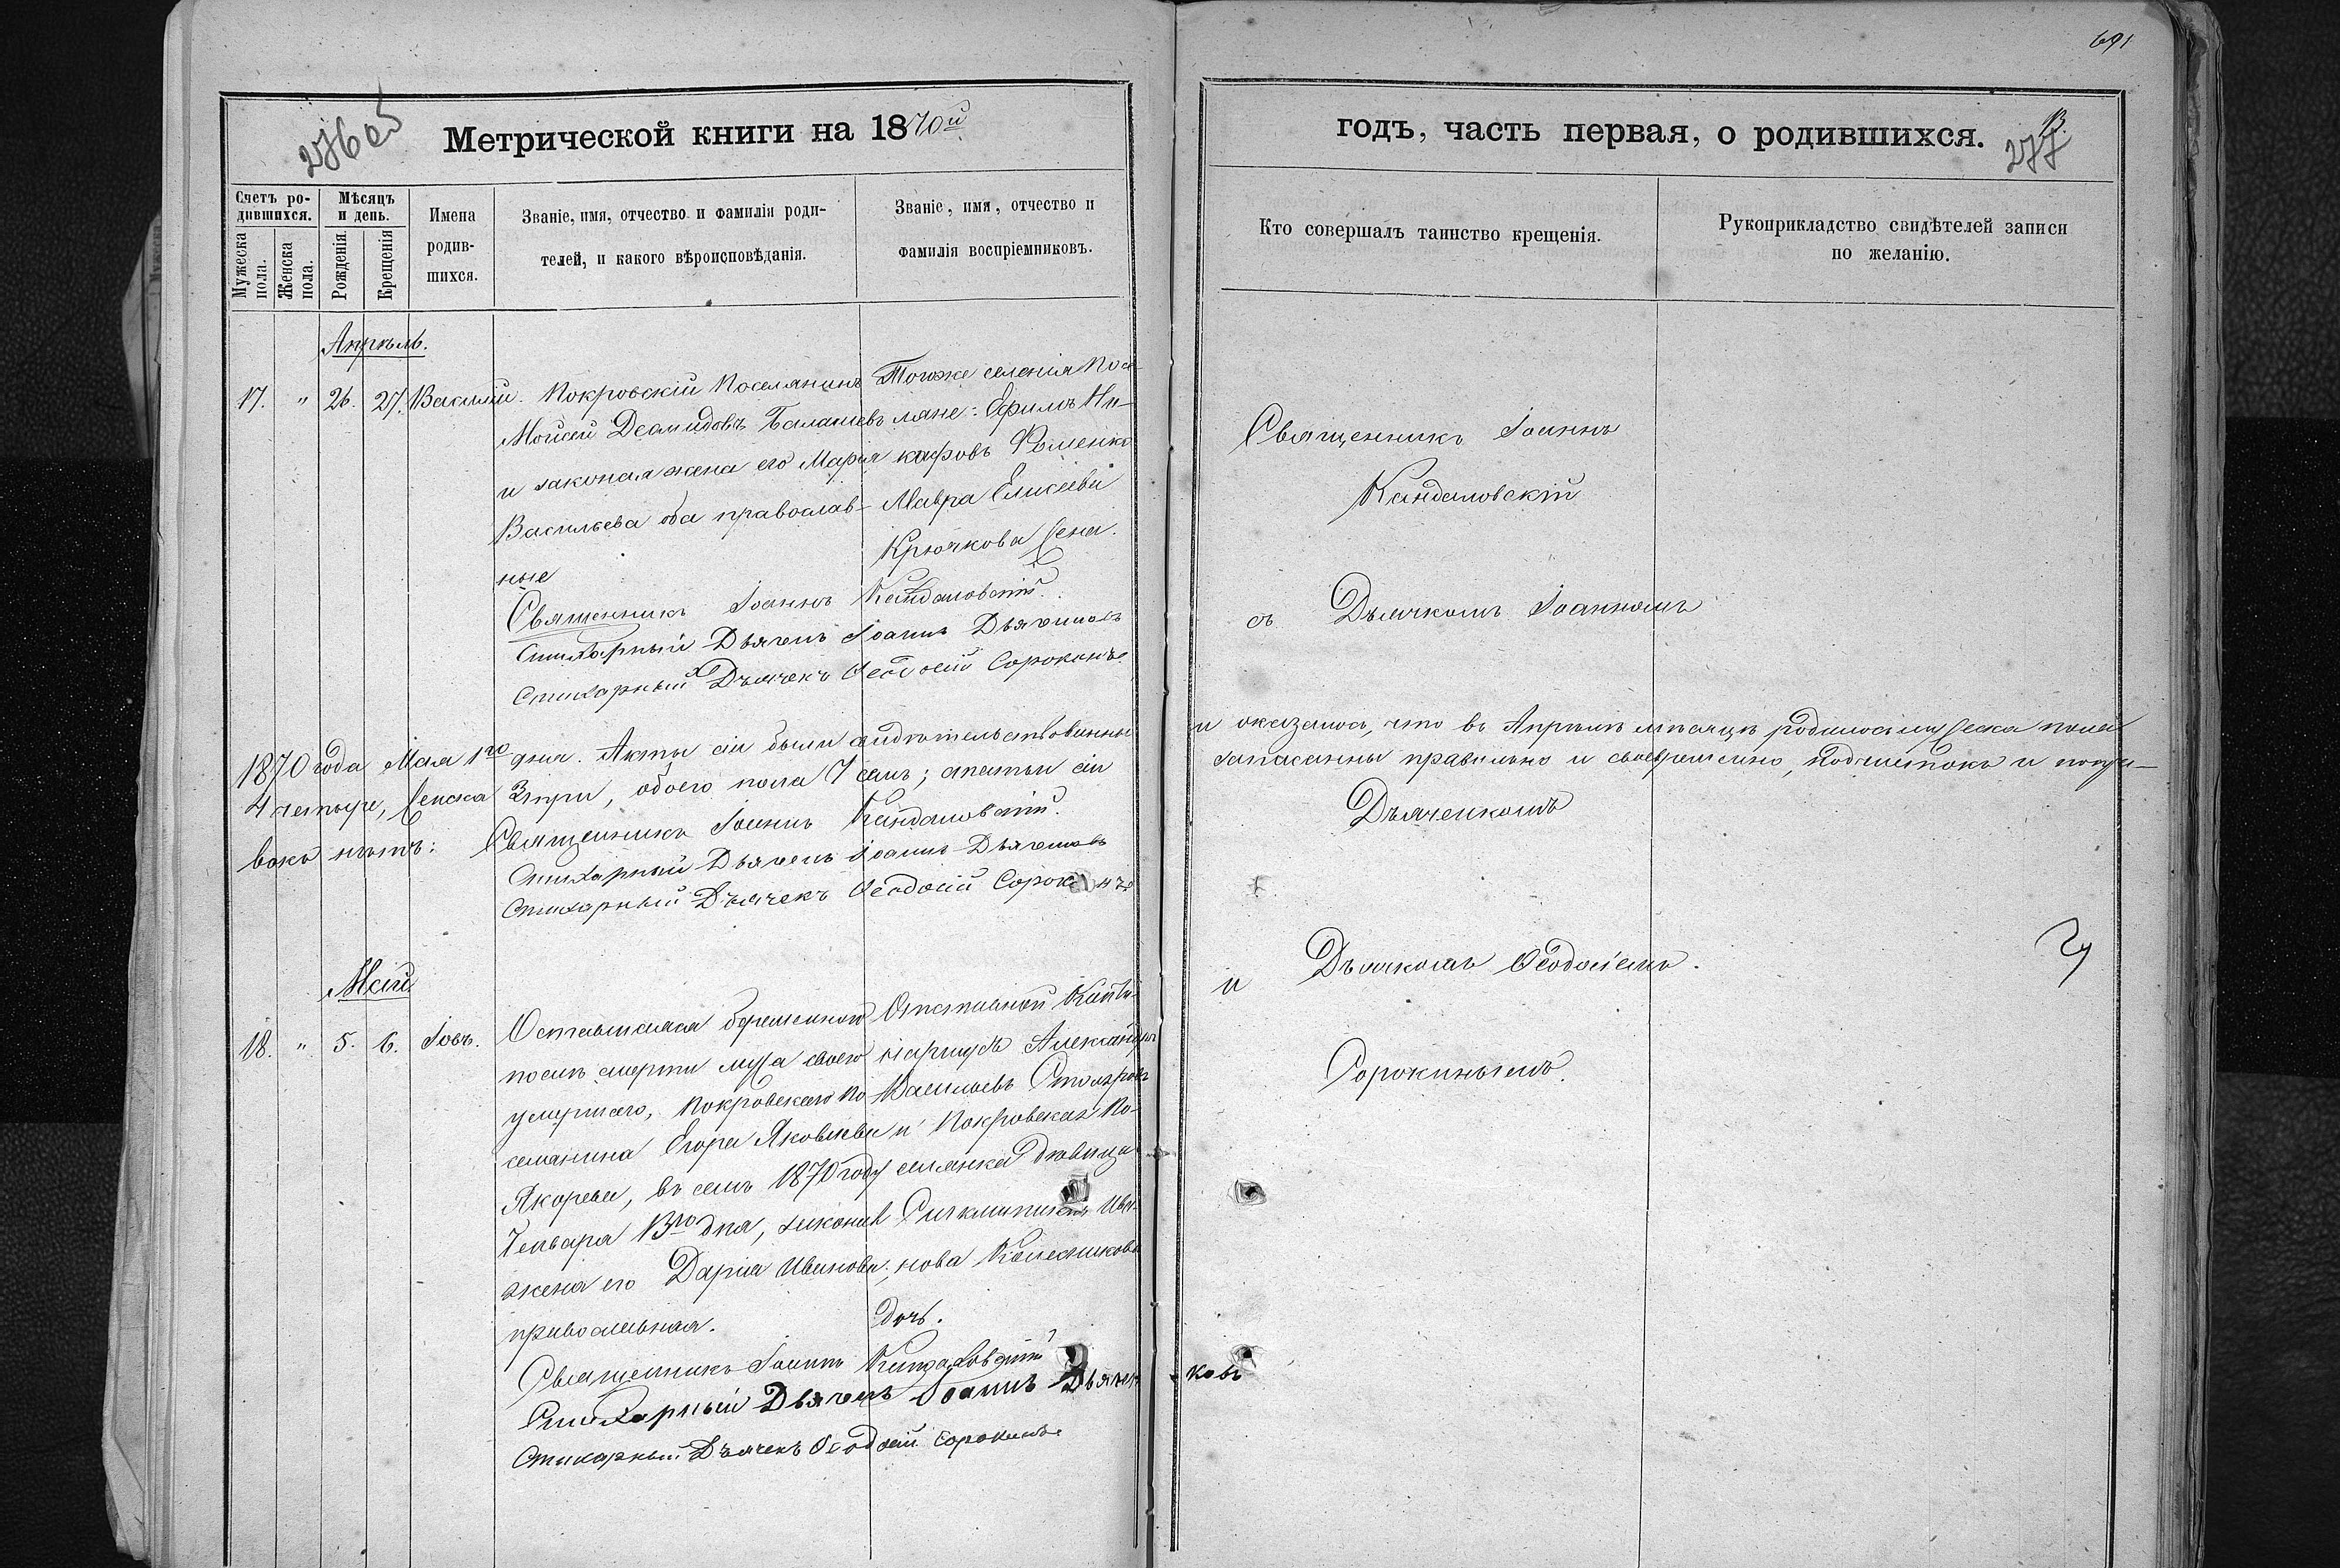 691
276 об
Метрической книги на 1870й
годъ, часть первая, о родившихся.
13.
277
Счетъ ро-
дившихся.
Мужеска пола.
Женска пола.
Мѣсяцъ
и день.
Рожденія.
Крещенія
Имена
родив-
шихся.
Званіе, имя, отчество и фамилія роди-
телей, и какого вѣроисповѣданія.
Званіе, имя, отчество и
фамилія воспріемниковъ.
Кто совершалъ таинство крещенія.
Рукоприкладство свидѣтелей записи
по желанію.
Апрѣль.
17. " 26. 27. Василій.
Покровскій Поселянинъ
Моисей Деомидовъ Балашевъ
и законая жена его Марія
Васильева оба православ-
ные
Тогоже селенія Посе-
ляне: Ефимъ Ни-
кифовъ Фоменко
Мавра Елисеева
Крючкова жена.
Священникъ Іоаннъ
Кандаловскій
съ Дьячкомъ Іоанномъ
Священникъ Іоаннъ Кандаловскій.
Стихарный Дьячекъ Іоаннъ Дьячковъ
Стихарный Дьячекъ Ѳеодосій Сорокинъ
1870 года Мая 1го дня. Акты сіи были свидѣтельствованны и оказалось, что въ Апрѣлѣ мѣсяцѣ родилось мужеска пола
4 четыре, женска 3 три, обоего пола 7 семь; статьи сіи записанны правильно и своевременно, подчистокъ и попра-
вокъ нѣтъ: Священникъ Іоаннъ Кандаловскій.
Стихарный Дьячекъ Іоаннъ Дьячковъ
Стихарный Дьячекъ Ѳеодосій Сорокинъ
Дьяченкомъ
Май
18. " 5. 6. Іовъ.
Оставшаяся беременною
послѣ смерти мужа своего
умершаго, Покровскаго По-
селянина Егора Яковлева
Якорева, въ семъ 1870 году
Генваря 13го дня, законая
жена его Дарія Иванова,
православная.
Отставной Капте-
нармусъ Александръ
Васильевъ Столяровъ
и Покровская По-
селянка дѣвица
Ива-
нова Колесникова
дочь.
и Дьячкомъ Ѳеодосіемъ.
Сорокинымъ.
Священникъ Іоаннъ Кандаловскій
Стихарный Дьячекъ Іоаннъ Дьячковъ
Стихарный Дьячекъ Ѳеодосій Сорокинъ